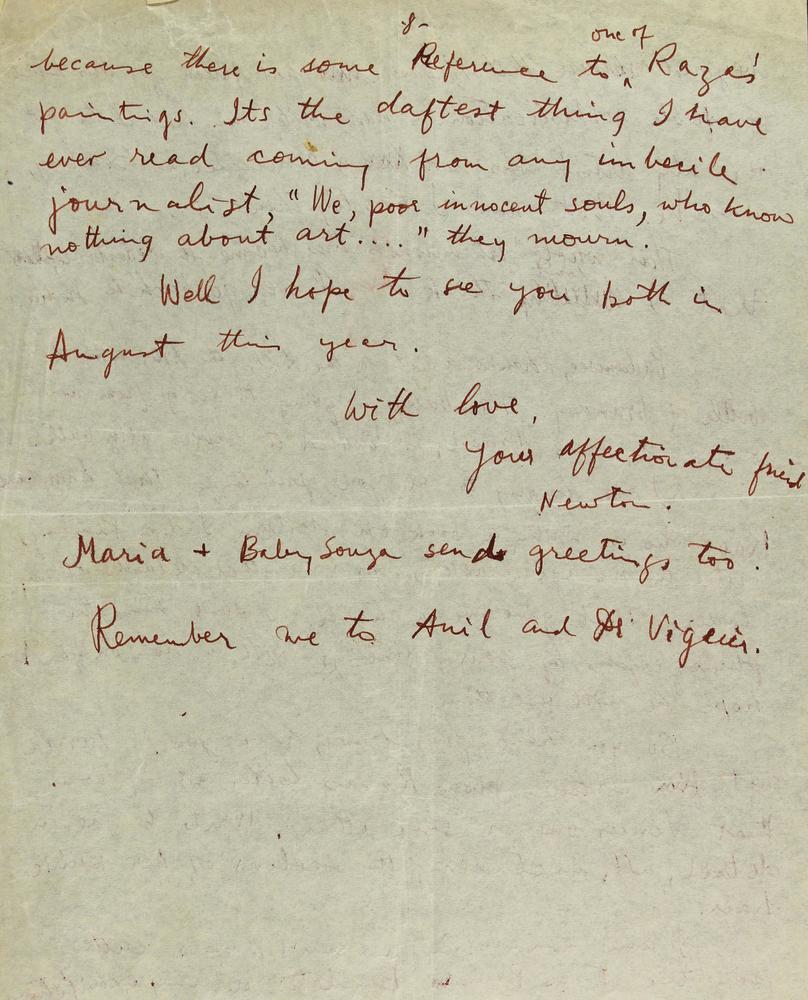 -8-
because there is some Reference to one of Raza's
paintings. Its the daftest thing I have
ever read coming from any imbecile
journalist, "We, poor innocent souls, who know
nothing about art...." they mourn.
Well I hope to see you both in
August this year.
With love,
Your affectionate friend
Newton.
Maria + Baby Souza send greetings too!
Remember me to Anil and Dr